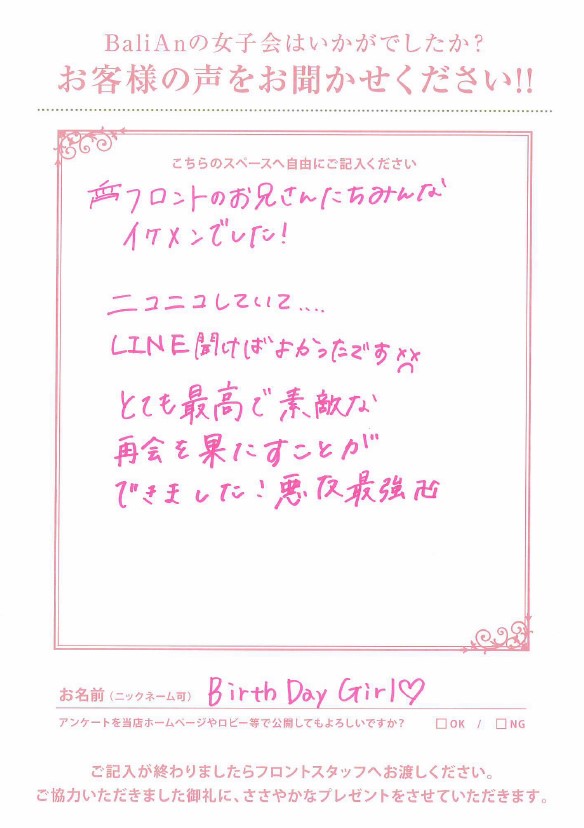 BaliAnの女子会はいかがでしたか？
お客様の声をお聞かせください!!
こちらのスペースへ自由にご記入ください
フロントのお兄さんたちみんな
イケメンでした!
ニコニコしていて....
LINE聞けばよかったです
とても最高で素敵な
再会を果たすことが
できました! 悪友最強卍
お名前（ニックネーム可） Birth Day Girl♡
アンケートを当店ホームページやロビー等で公開してもよろしいですか？ □OK / □NG
ご記入が終わりましたらフロントスタッフへお渡しください。
ご協力いただきました御礼に、ささやかなプレゼントをさせていただきます。